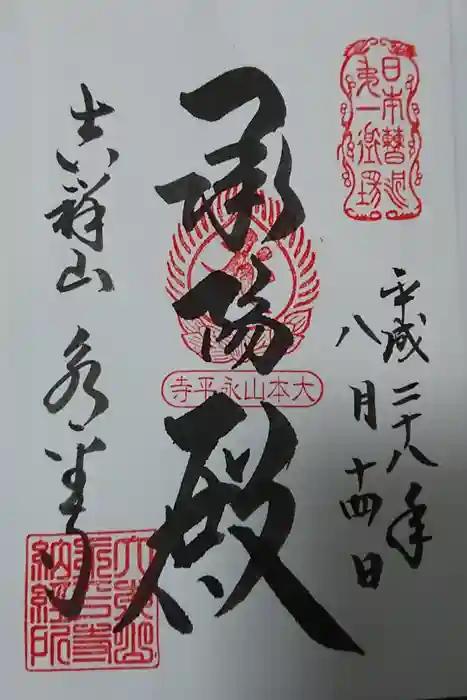 日本曹洞
第一道場
平成二十八年
八月十四日
承陽殿
大本山永平寺
吉祥山 永平寺
大本山
永平寺
納経所